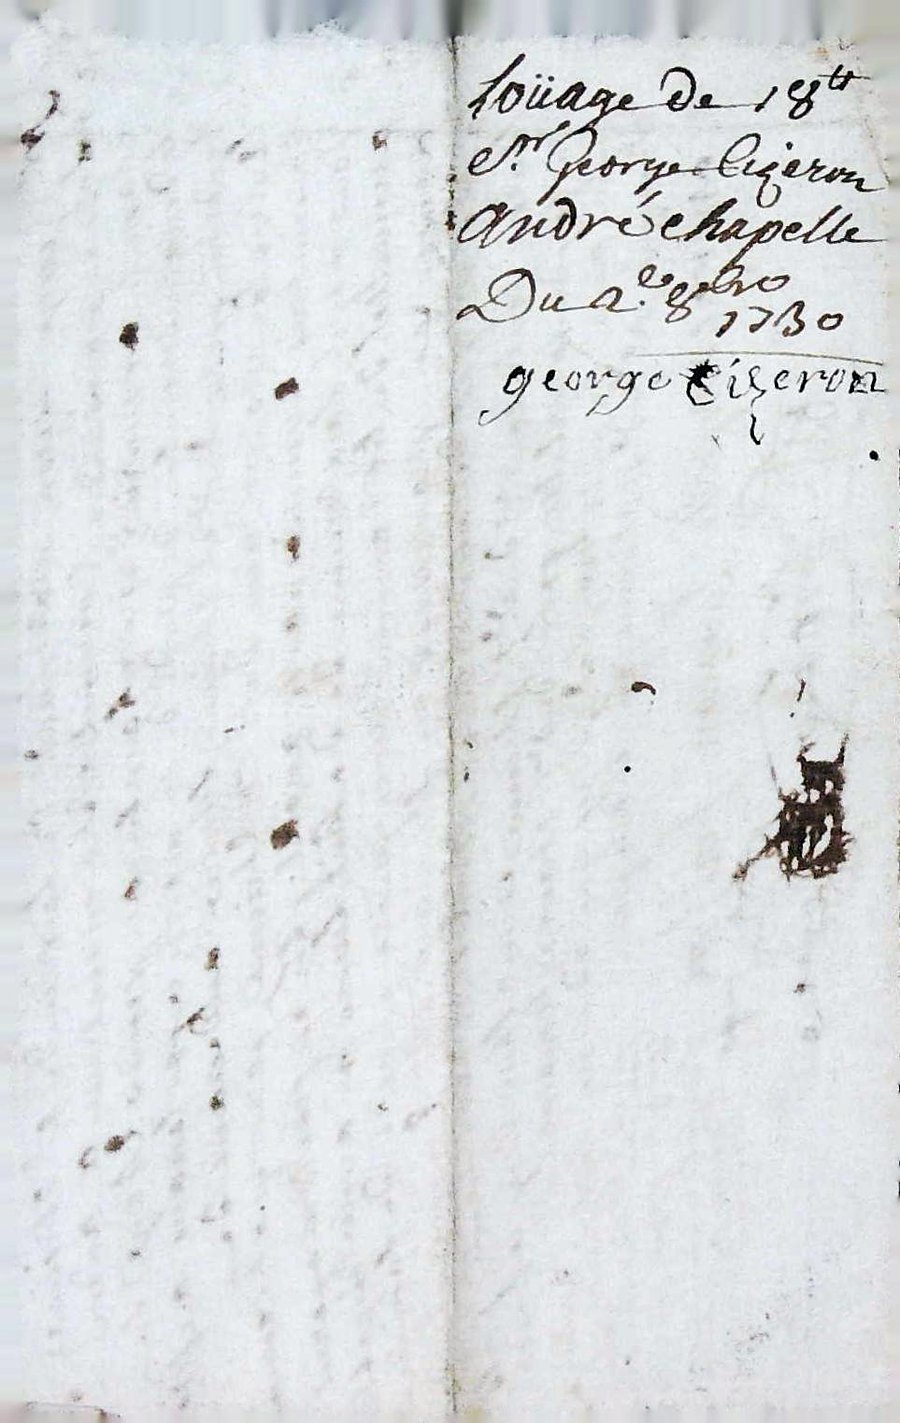 Loüage de 18ᵗᵗ
Sʳ George Cizeron
André chapelle
Du 2.ᵉ 8bre
1730
george Cizeron